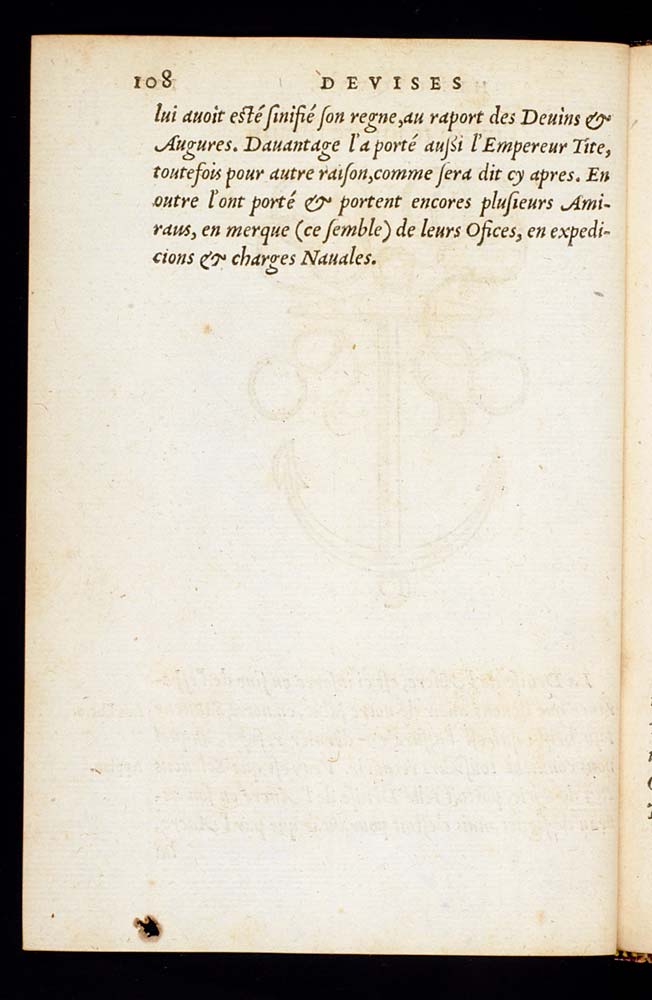 108 DEVISES
lui auoit esté sinifié son regne, au raport des Deuins &
Augures. Dauantage l'a porté aussi l'Empereur Tite,
toutefois pour autre raison, comme sera dit cy apres. En
outre l'ont porté & portent encores plusieurs Ami-
raus, en merque (ce semble) de leurs Ofices, en expedi-
cions & charges Nauales.